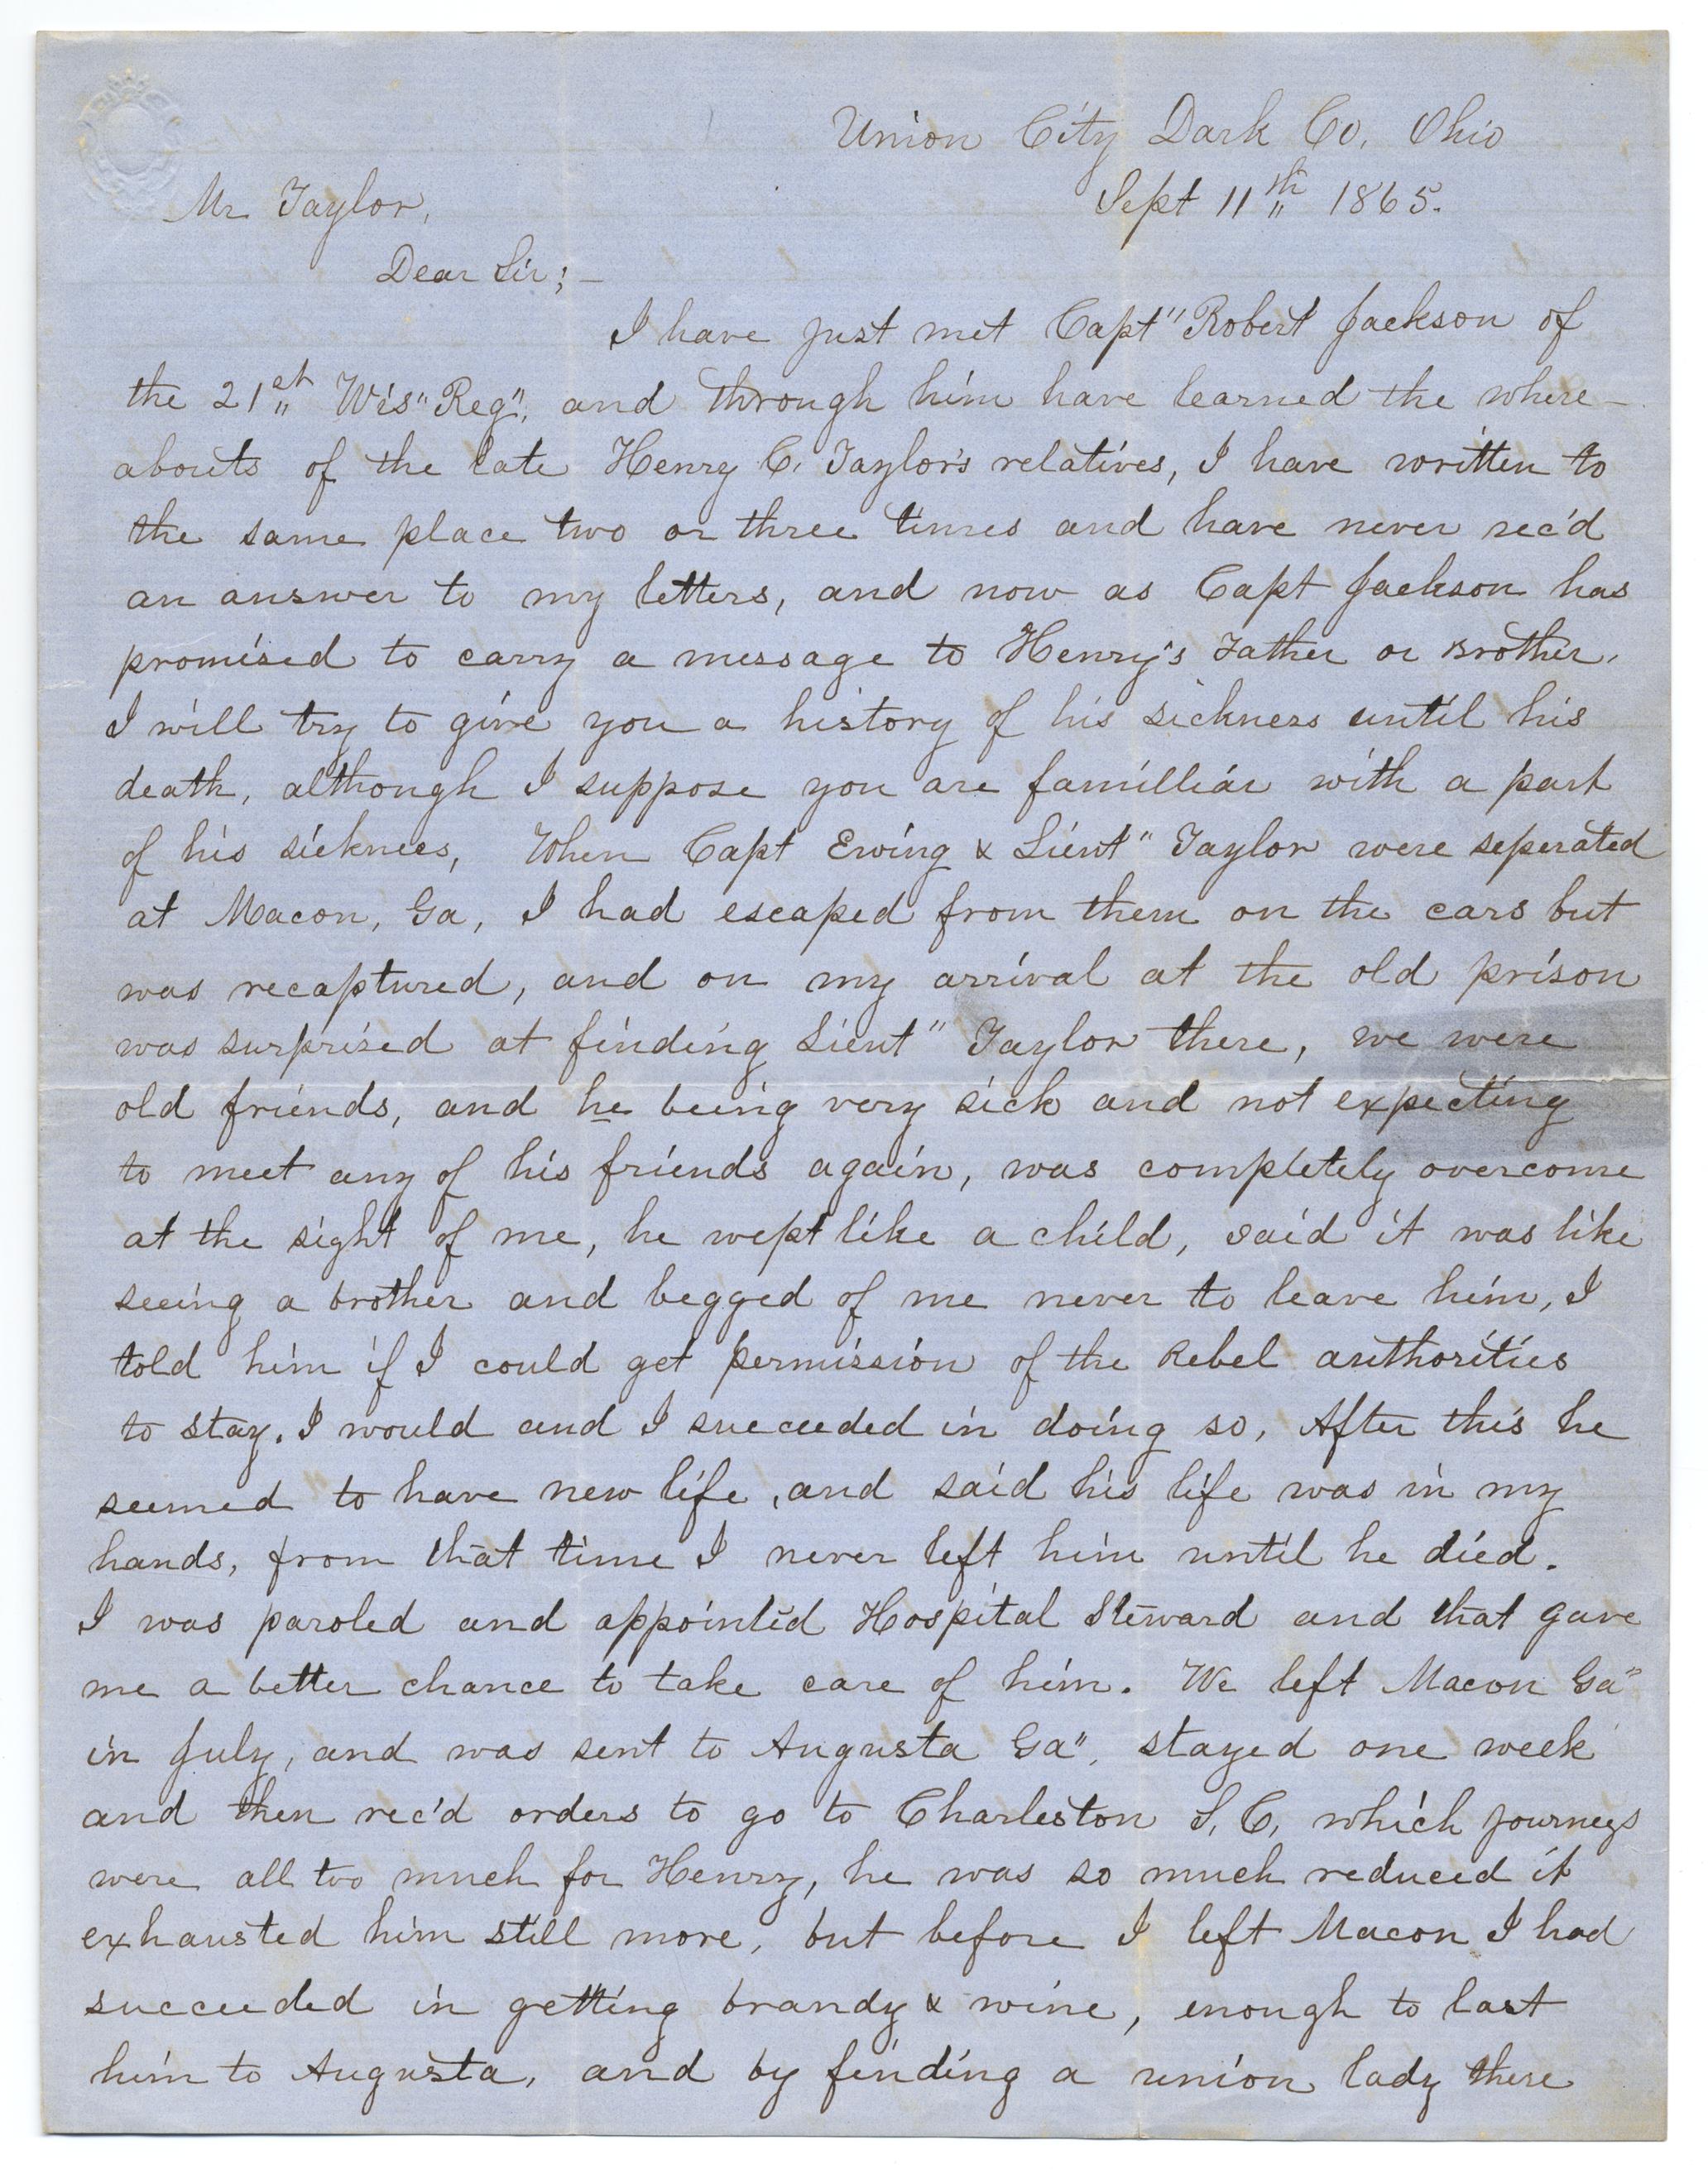 Union City Dark Co. Ohio
Sept 11th 1865.
Mr Taylor,
Dear Sir; –
I have just met Capt" Robert Jackson of
the 21st Wis" Reg", and through him have learned the where–
abouts of the late Henry C. Taylor's relatives, I have written to
the same place two or three times and have never rec'd
an answer to my letters, and now as Capt Jackson has
promised to carry a message to Henry's Father or Brother,
I will try to give you a history of his sickness until his
death, although I suppose you are familliar with a part
of his sickness, When Capt Ewing & Lieut" Taylor were seperated
at Macon, Ga, I had escaped from them on the cars but
was recaptured, and on my arrival at the old prison
was surprised at finding Lieut" Taylor there, we were
old friends, and he being very sick and not expecting
to meet any of his friends again, was completely overcome
at the sight of me, he wept like a child, said it was like
seeing a brother and begged of me never to leave him, I
told him if I could get permission of the Rebel authorities
to stay. I would and I succeeded in doing so, After this he
seemed to have new life, and said his life was in my
hands, from that time I never left him until he died.
I was paroled and appointed Hospital Steward and that gave
me a better chance to take care of him. We left Macon Ga"
in July, and was sent to Augusta Ga", stayed one week
and then rec'd orders to go to Charleston S. C, which journeys
were all too much for Henry, he was so much reduced it
exhausted him still more, but before I left Macon I had
succeeded in getting brandy & wine, enough to last
him to Augusta, and by finding a union lady there